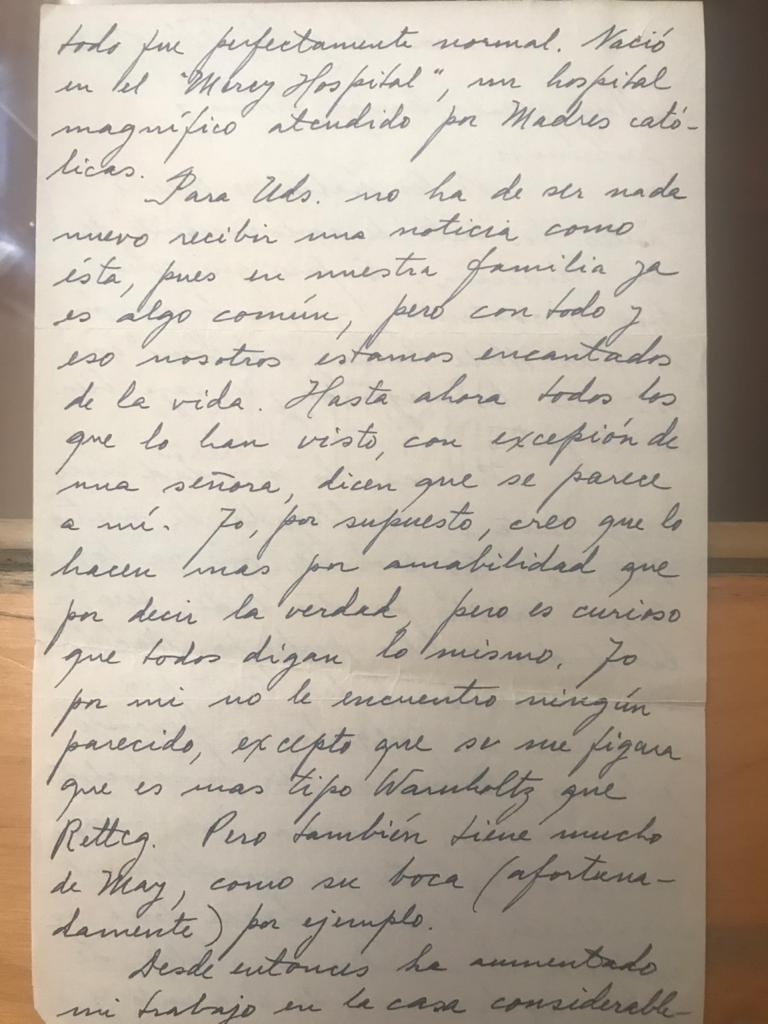 todo fue perfectamente normal. Nació
en el "Mercy Hospital", un hospital
magnífico atendido por Madres cató-
licas.
Para Uds. no ha de ser nada
nuevo recibir una noticia como
ésta, pues en nuestra familia ya
es algo común, pero con todo y
eso nosotros estamos encantados
de la vida. Hasta ahora todos los
que lo han visto, con excepión de
una señora, dicen que se parece
a mí. Yo, por supuesto, creo que lo
hacen mas por amabilidad que
por decir la verdad, pero es curioso
que todos digan lo mismo. Yo
por mi no le encuentro ningún
parecido, excepto que se me figura
que es mas tipo Warnholtz que
Retteg. Pero también tiene mucho
de May, como su boca (afortuna-
damente) por ejemplo.
Desde entonces ha aumentado
mi trabajo en la casa considerable-